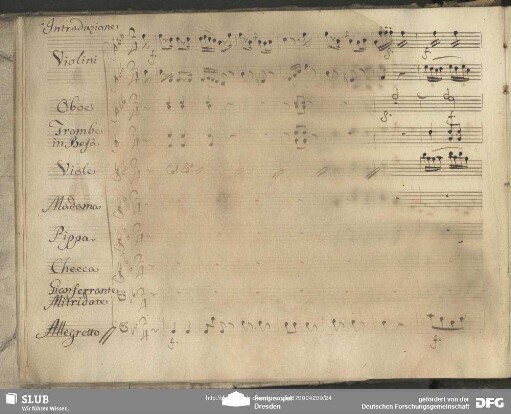 Introduzione
Violini
Oboe
Trombe
in Befà
Viole
Madama
Pippa
Checca
Gianferrante
Mitridate
Allegretto
SLUB
Wir führen Wissen.
Dresden
gefördert von der
Deutschen Forschungsgemeinschaft
DFG